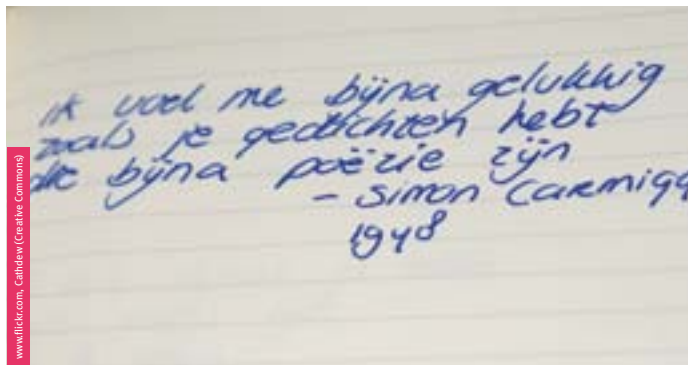 ik voel me bijna gelukkig
zoals je gedichten hebt
die bijna poëzie zijn
- Simon Carmigg
1948
www.flickr.com, Cathdew (Creative Commons)